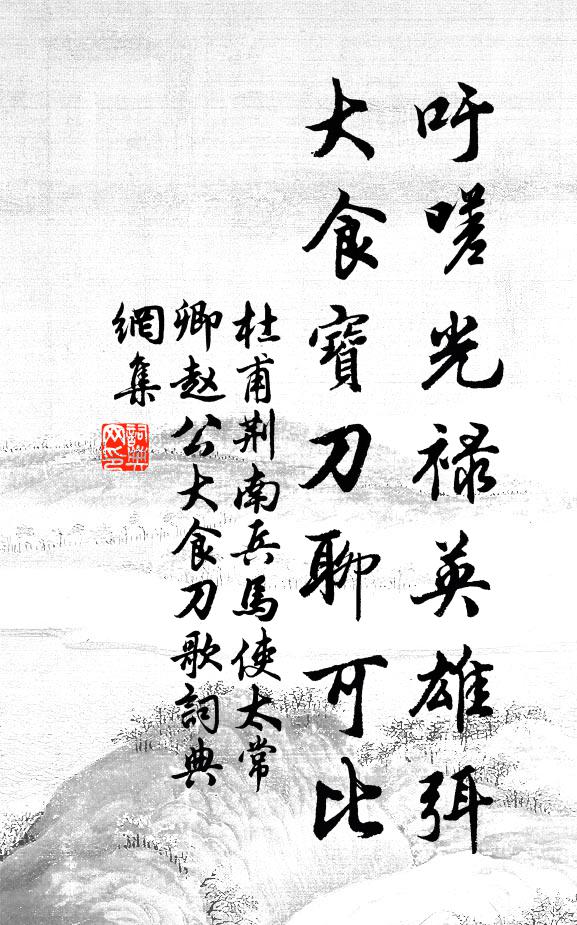 吁嗟光禄英雄弭
大食寶刀聊可比
杜甫荆南兵馬使太常
卿赵公大食刀歌詞典
網集